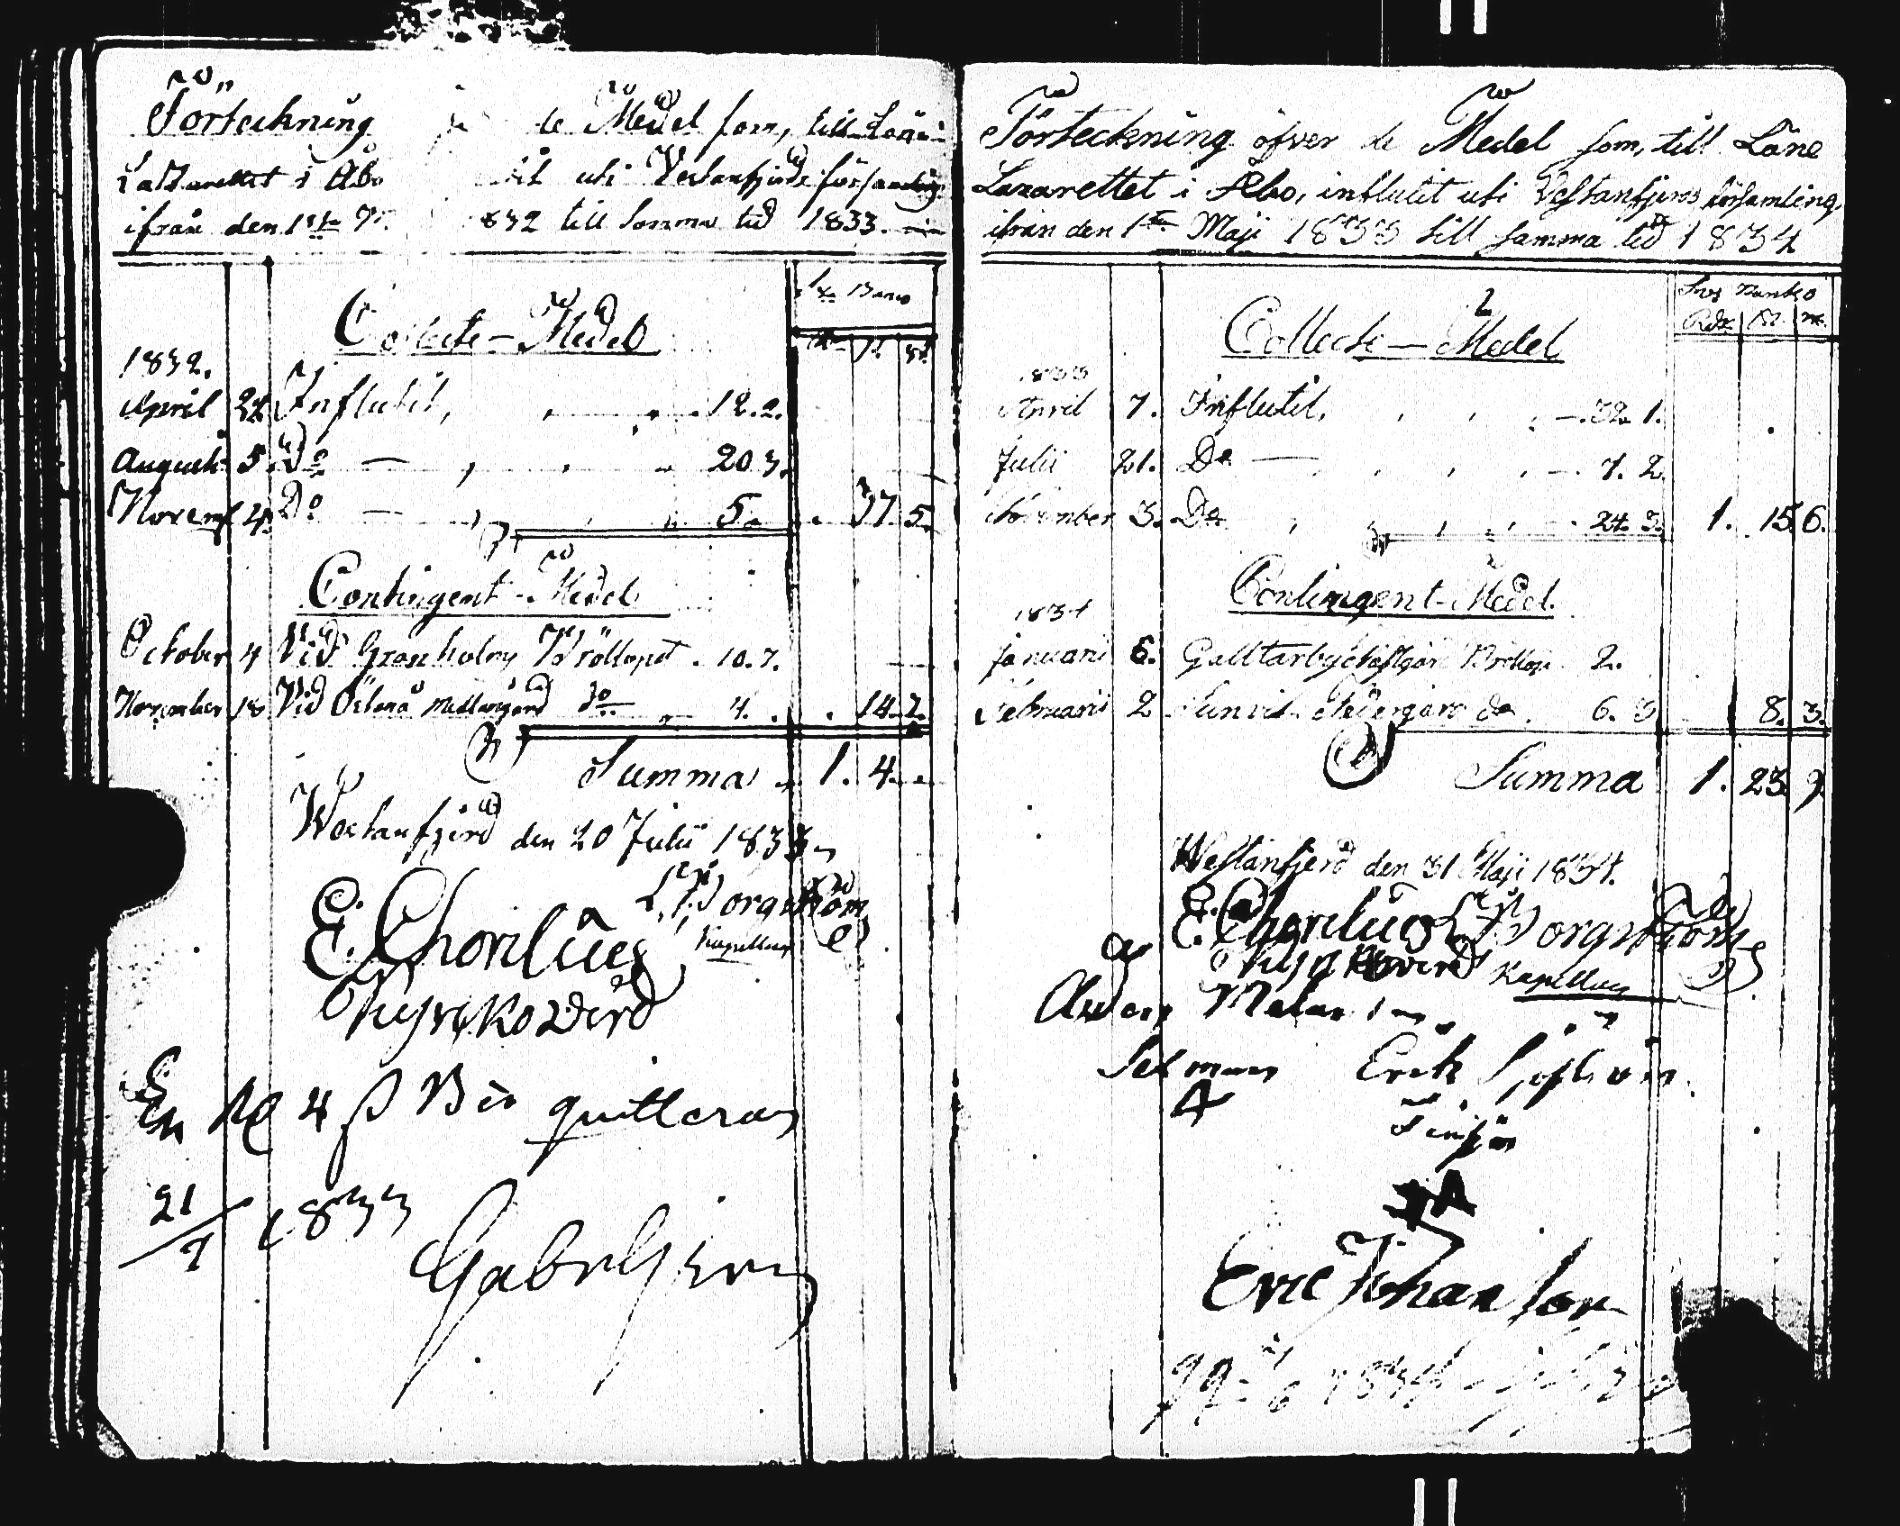 Förteckning de Medel som, till Läne
Lazarettet i Åbo uti Vestanfjerds församling
ifrån den 1ste 832 till samma tid 1833.
Collecte-Medel
1832.
April 24 Influtit, 12. 2.
Augusti 5. Do 20. 3.
Novemb 4. Do 5. 37. 5.
Contingent-Medel
October 4 Vid Granholms Bröllopet 10. 7.
November 18 Vid Östanå Mellangård do 4. 14. 7.
Summa 1. 4.
Westanfjerd den 20 Julii 1833
E. Chorelius L. Borgström
Kapellan
Kyrkowärd
En Rd 4 β Bco quitteras
21/7 1833
Förteckning öfver de Medel som, till Läne
Lazarettet i Åbo, influtit uti Vestanfjerds församling,
ifrån den 1ste Maji 1833 till samma tid 1834
Collecte-Medel
1833
April 7. Influtit, 32. 1.
Julii 21. Do 7. 2.
November 3. Do 24. 3. 1. 15. 6.
Contingent-Medel.
1834
Januarii 6. Galltarby 2.
Februarii 2 Sunvik Nedergård do 6. 3. 8. 3.
Summa 1. 23. 9.
Westanfjerd den 31 Maji 1834.
E. Chorelius L. Borgström
Kyrkowärd Kapellan
Erik
Eric Johansson